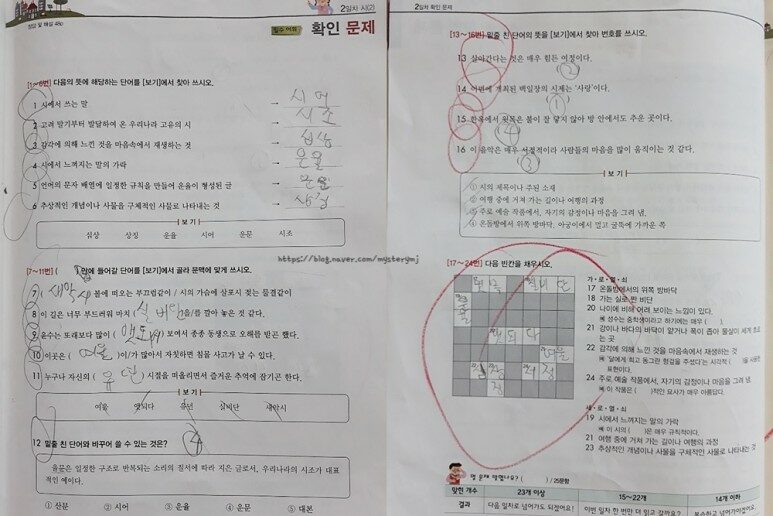 정답 및 해설 48p
2일차 시(2)
필수 어휘 확인 문제
[1~6번] 다음의 뜻에 해당하는 단어를 [보기]에서 찾아 쓰시오.
1 시에서 쓰는 말 → 시어
2 고려 말기부터 발달하여 온 우리나라 고유의 시 → 시조
3 감각에 의해 느낀 것을 마음속에서 재생하는 것 → 심상
4 시에서 느껴지는 말의 가락 → 운율
5 언어의 문자 배열에 일정한 규칙을 만들어 운율이 형성된 글 → 운문
6 추상적인 개념이나 사물을 구체적인 사물로 나타내는 것 → 상징
보기
심상 상징 운율 시어 운문 시조
[7~11번] ( )안에 들어갈 단어를 [보기]에서 골라 문맥에 맞게 쓰시오.
7 (새악시) 볼에 떠오는 부끄럽같이 / 시의 가슴에 살포시 젖는 물결같이
8 이 길은 너무 부드러워 마치 (실비단)을 깔아 놓은 것 같다.
9 윤수는 또래보다 많이 (앳되) 보여서 종종 동생으로 오해를 받곤 했다.
10 이곳은 (여울)이/가 많아서 자칫하면 침몰 사고가 날 수 있다.
11 누구나 자신의 (유년)시절을 떠올리면서 즐거운 추억에 잠기곤 한다.
보기
여울 앳되다 유년 실비단 새악시
12 밑줄 친 단어와 바꾸어 쓸 수 있는 것은? ④
율문은 일정한 구조로 반복되는 소리의 질서에 따라 지은 글로서, 우리나라의 시조가 대표
적인 예이다.
① 산문 ② 시어 ③ 운율 ④ 운문 ⑤ 대본
2일차 확인 문제
[13~16번] 밑줄 친 단어의 뜻을 [보기]에서 찾아 번호를 쓰시오.
13 살아간다는 것은 매우 힘든 여정이다.
②
14 이번에 개최된 백일장의 시제는 '사랑'이다.
①
15 한옥에서 윗목은 불이 잘 닿지 않아 방 안에서도 추운 곳이다.
④
16 이 음악은 매우 서정적이라 사람들의 마음을 많이 움직이는 것 같다.
③
보기
① 시의 제목이나 주된 소재
② 여행 중에 거쳐 가는 길이나 여행의 과정
③ 주로 예술 작품에서, 자기의 감정이나 마음을 그려 냄.
④ 온돌방에서 위쪽 방바닥. 아궁이에서 멀고 굴뚝에 가까운 쪽
https://blog.naver.com/mysterymj
[17~24번] 다음 빈칸을 채우시오.
윗목 실비단
운율
앳되다
여울
심상 서정
가·로·열·쇠
17 온돌방에서의 위쪽 방바닥
18 가는 실로 짠 비단
20 나이에 비해 어려 보이는 느낌이 있다.
21 강이나 바다의 바닥이 얕거나 폭이 좁아 물살이 세게 흐르
는 곳
22 감각에 의해 느낀 것을 마음속에서 재생하는 것
24 주로 예술 작품에서, 자기의 감정이나 마음을 그려 냄
예 이 작품은 ( )적인 묘사가 매우 아름답다.
세·로·열·쇠
19 시에서 느껴지는 말의 가락
예 이 시의 ( )은 매우 규칙적이다.
21 여행 중에 거쳐 가는 길이나 여행의 과정
23 추상적인 개념이나 사물을 구체적인 사물로 나타내는 것
몇 문제 맞혔나요? ( ) / 25문항
맞힌 개수 23개 이상 15~22개 14개 이하
결과 다음 일차로 넘어가도 되겠어요! 이번 일차 한 번만 더 읽고 갈까요? 복습하고 넘어가야겠어요.